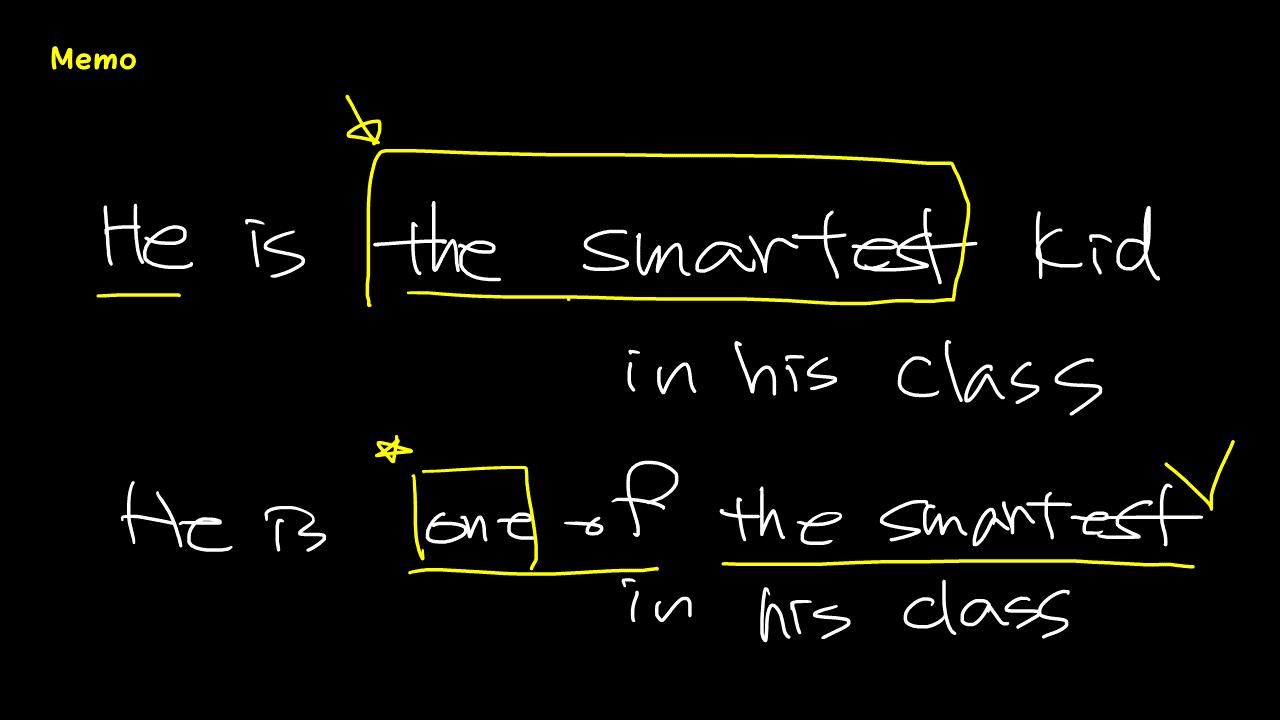 Memo
He is the smartest kid
in his class
He is one of the smartest
in his class